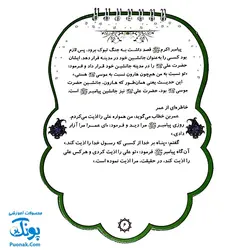 پیامبر اکرمﷺ قصد داشت به جنگ تبوک برود، پس لازم
بود کسی را به‌عنوان جانشین خود در مدینه قرار دهد. ایشان
حضرت علیؑ را در مدینه جانشین خود قرار داد و فرمود:
«تو نسبت به من هم‌چون هارون نسبت به موسیؑ هستی.»
این حدیث یعنی همان‌طور که هارون، جانشین حضرت
موسیؑ بود، حضرت علیؑ نیز جانشین پیامبرﷺ است.
خاطره‌ای از عمر
عمربن خطاب می‌گوید: من همواره علی را اذیت می‌کردم.
روزی پیامبرﷺ مرا دید و فرمود: «ای عمر! مرا آزار
دادی.»
گفتم: «پناه بر خدا از کسی که رسول خدا را اذیت کند.»
آن‌گاه پیامبرﷺ فرمود: «تو علی را اذیت کردی و هرکس علی
را اذیت کند، در حقیقت، مرا اذیت نموده است.»
محصولات آموزشی
پونک
Poonak.com